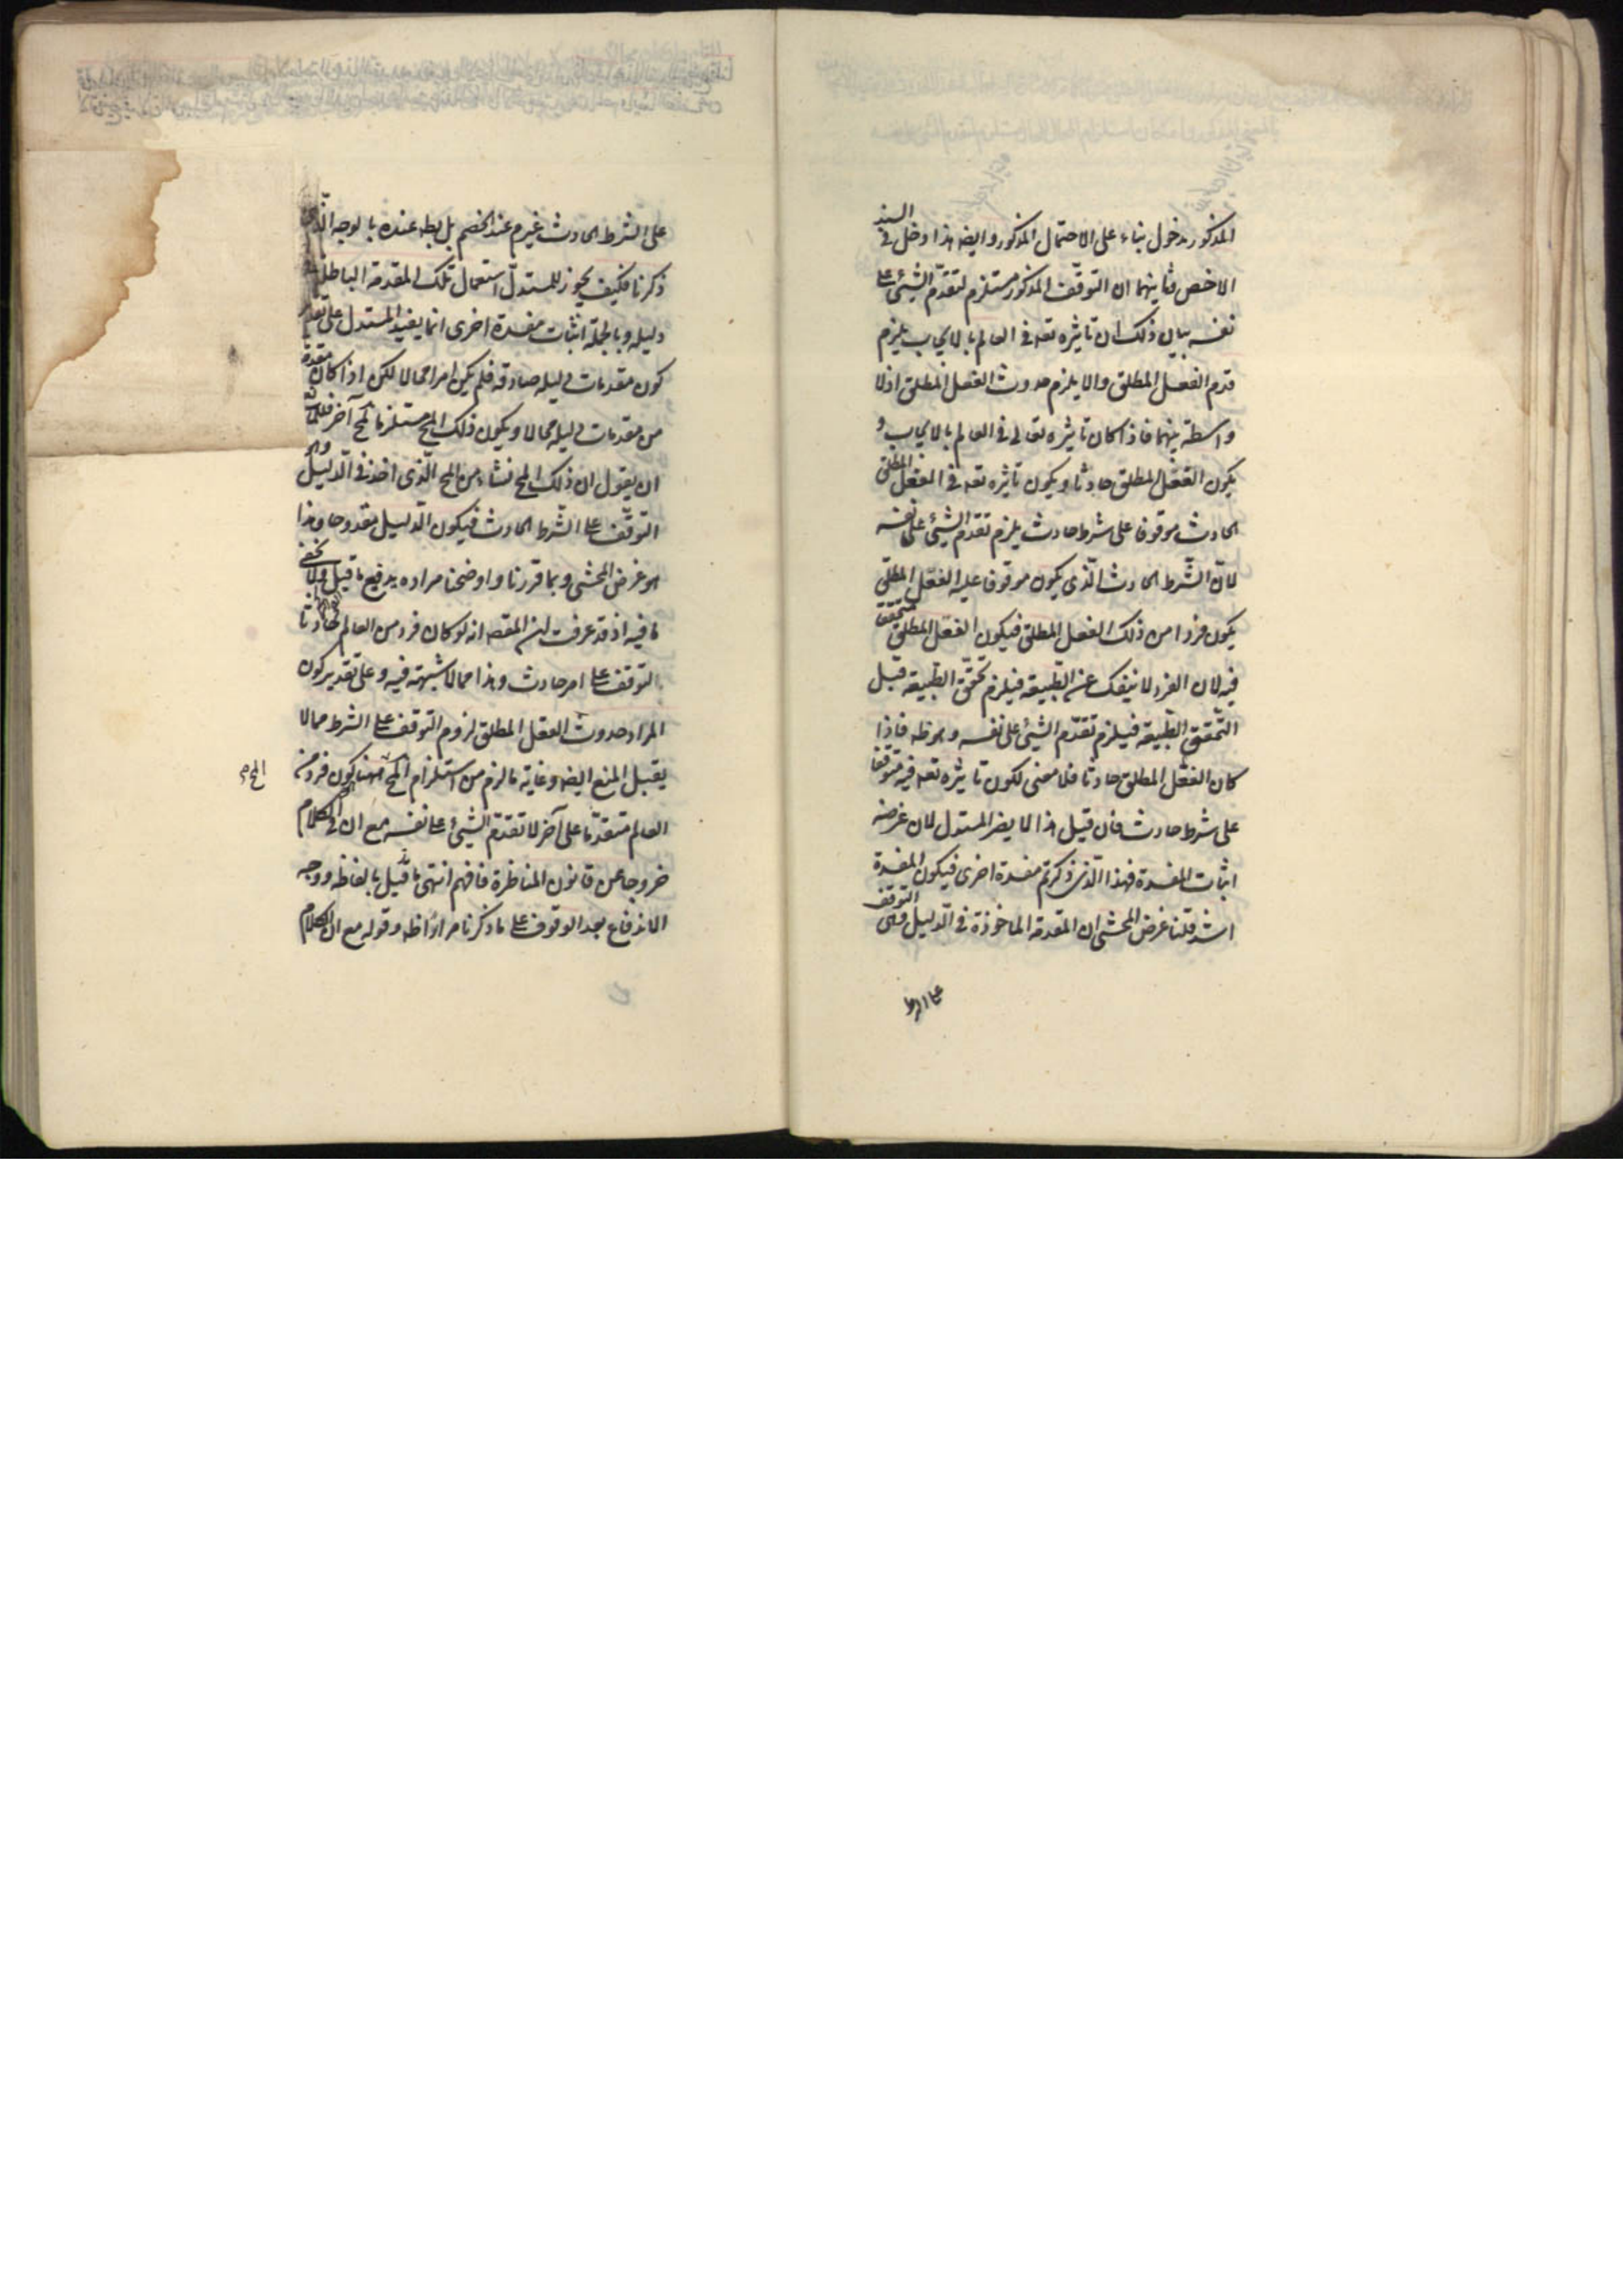 المذكور مدخول بناء على الاحتمال المذكور وايضه هذا دخل في السند
الاخص وثانيهما ان التوقف المذكور مستلزم لتقدم الشيئ على
نفسه بيان ذلك ان تاثيره تعه في العالم بالايجاب يلزم
قدم الفعل المطلق والا يلزم حدوث الفعل المطلق اذ لا
واسطة بينهما فاذا كان تاثيره تعالى في العالم بالايجاب و
يكون الفعل المطلق حادثا ويكون تاثيره تعه في الفعل المطلق
الحادث موقوفا على شرط حادث يلزم تقدم الشيئ على نفسه
لان الشرط الحادث الذى يكون موقوفا عليه الفعل المطلق
يكون فردا من ذلك الفعل المطلق فيكون الفعل المطلق متحققا
فيه لان الفرد لا ينفك عن الطبيعة فيلزم تحقق الطبيعة قبل
التحقق الطبيعة فيلزم تقدم الشيئ على نفسه وهو ظه فاذا
كان الفعل المطلق حادثا فلا معنى لكون تاثيره تعه فيه متوقفا
على شرط حادث فان قيل هذا لا يضر المستدل لان غرضه
اثبات المفسدة فهذا الذى ذكرتم مفسدة اخرى فيكون المفسدة
اشد قلنا غرض المحشى ان المقدمة الماخوذة في الدليل وهى التوقف
على الشرط
على الشرط الحادث غير م عند الخصم بل بطه عنده بالوجه الذى
ذكرنا فكيف يجوز للمستدل استعمال تلك المقدمة الباطلة
دليله وبالجملة اثبات مفسدة اخرى انما يفيد المستدل على تقدير
كون مقدمات دليله صادقه فلم يكن امرا محالا لكن اذا كان مقدمة
من مقدمات دليله محالا ويكون ذلك المح مستلزما لمح آخر
ان يقول ان ذلك المح نشاء من المح الذى اخذ في الدليل وهو
التوقف على الشرط الحادث فيكون الدليل مقدوحا وهذا
هو غرض المحشى وبما قررنا واوضحنا مراده يدفع ما قيل ولا يخفى
ما فيه اذ قد عرفت ان المقصه انه لو كان فرد من العالم حادثا
التوقف على امر حادث وهذا مما لا شبهة فيه وعلى تقدير كون
المراد حدوث الفعل المطلق لزوم التوقف على الشرط محالا
يقبل المنع ايضه وغاية ما لزم من استلزام المح ههنا كون فرد من
المح م
العالم متقدما على آخر لا تقدم الشيئ على نفسه مع ان في الكلام
خروجا عن قانون المناظرة فافهم انتهى ما قيل بالفاظه ووجه
الاندفاع بعد الوقوف على ما ذكرنا مرارا ظه وقوله مع ان الكلام